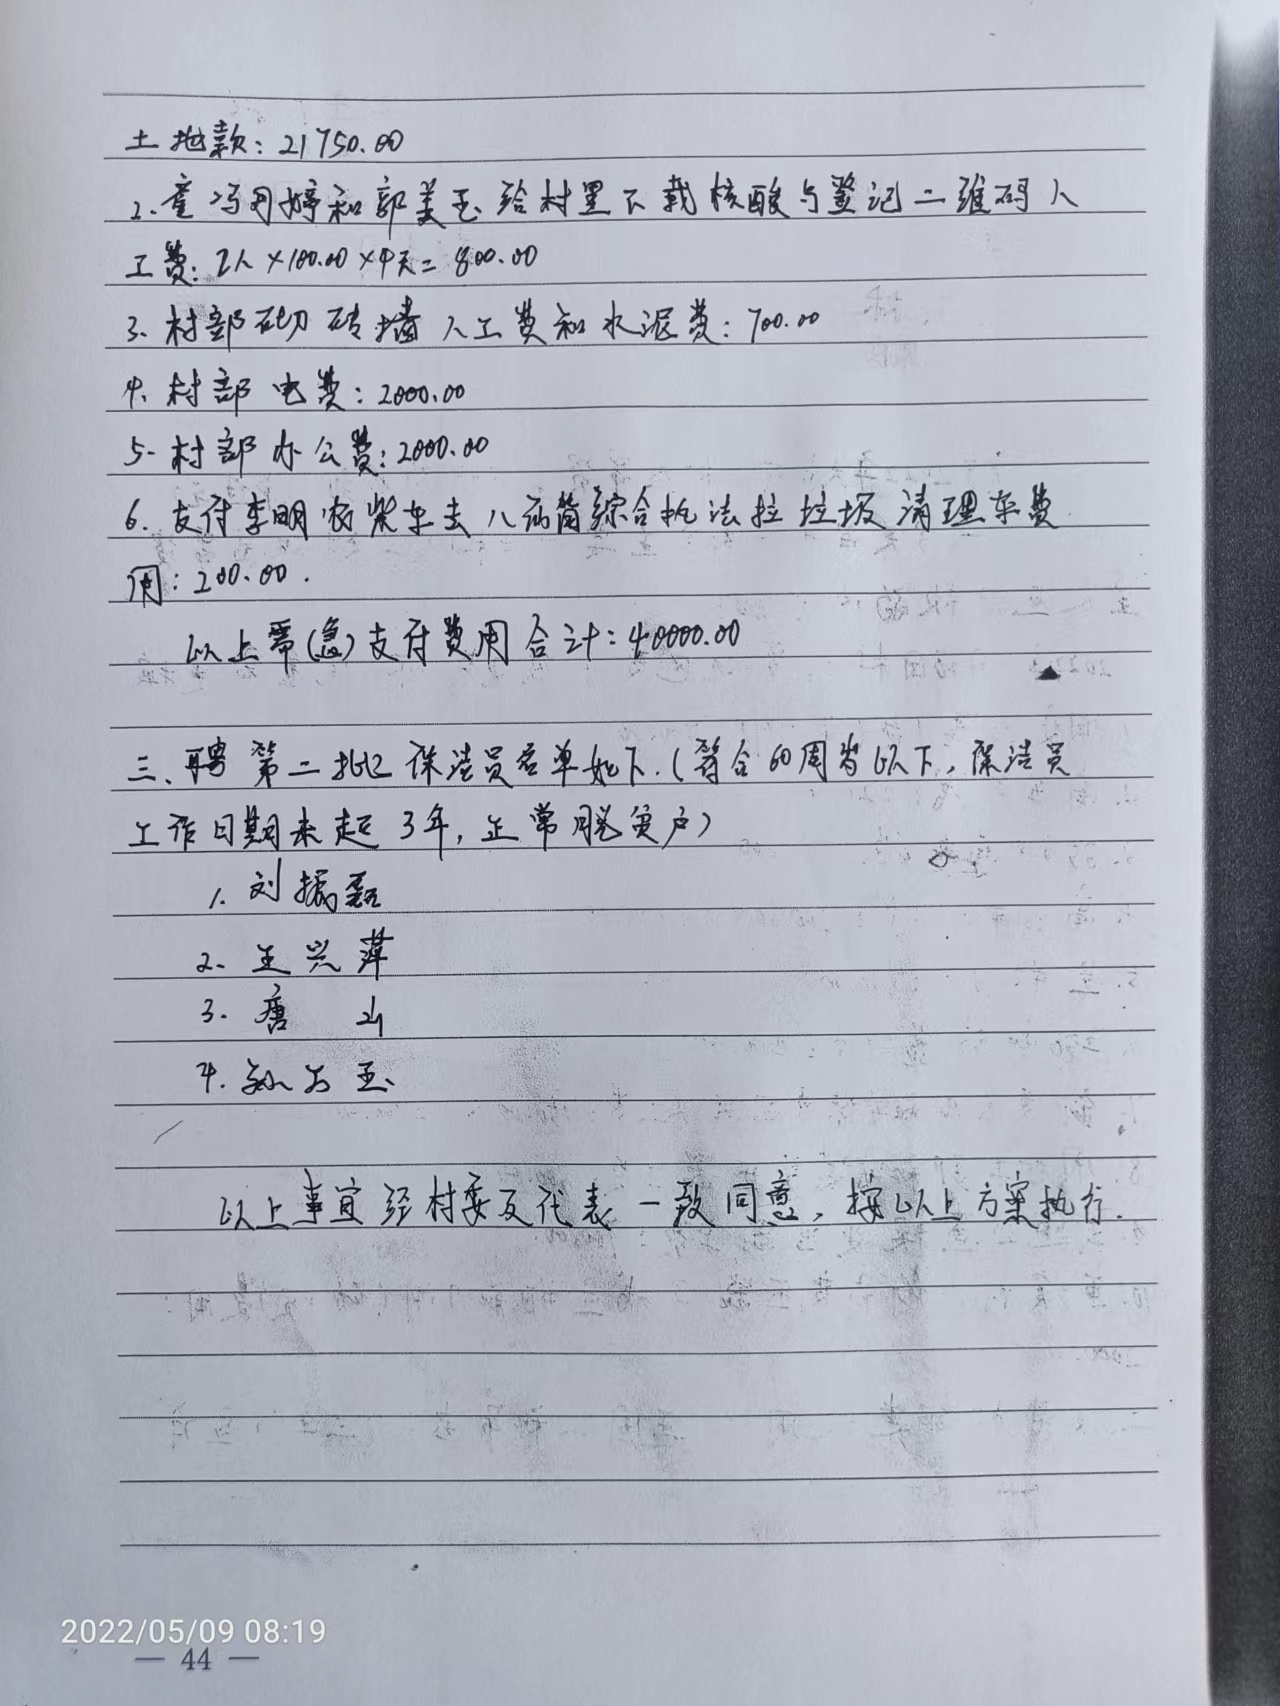 土地款：21750.00
2、童冯丹婷和郭美玉给村里下载核酸与登记二维码人
工费：2人×100.00×4天=800.00
3、村部砌砖墙人工费和水泥费：700.00
4、村部电费：2000.00
5、村部办公费：2000.00
6、支付李明农柴车去八 综合执法拉垃圾清理车费
用：200.00.
以上需(急)支付费用合计：40000.00
三、聘第二批保洁员名单如下.(符合60周岁以下，保洁员
工作日期未超3年，正常脱贫户)
1、刘振
2、王兴萍
3、唐 山
4、孙 玉
以上事宜经村委及代表一致同意，按以上方案执行.
2022/05/09 08:19
— 44 —